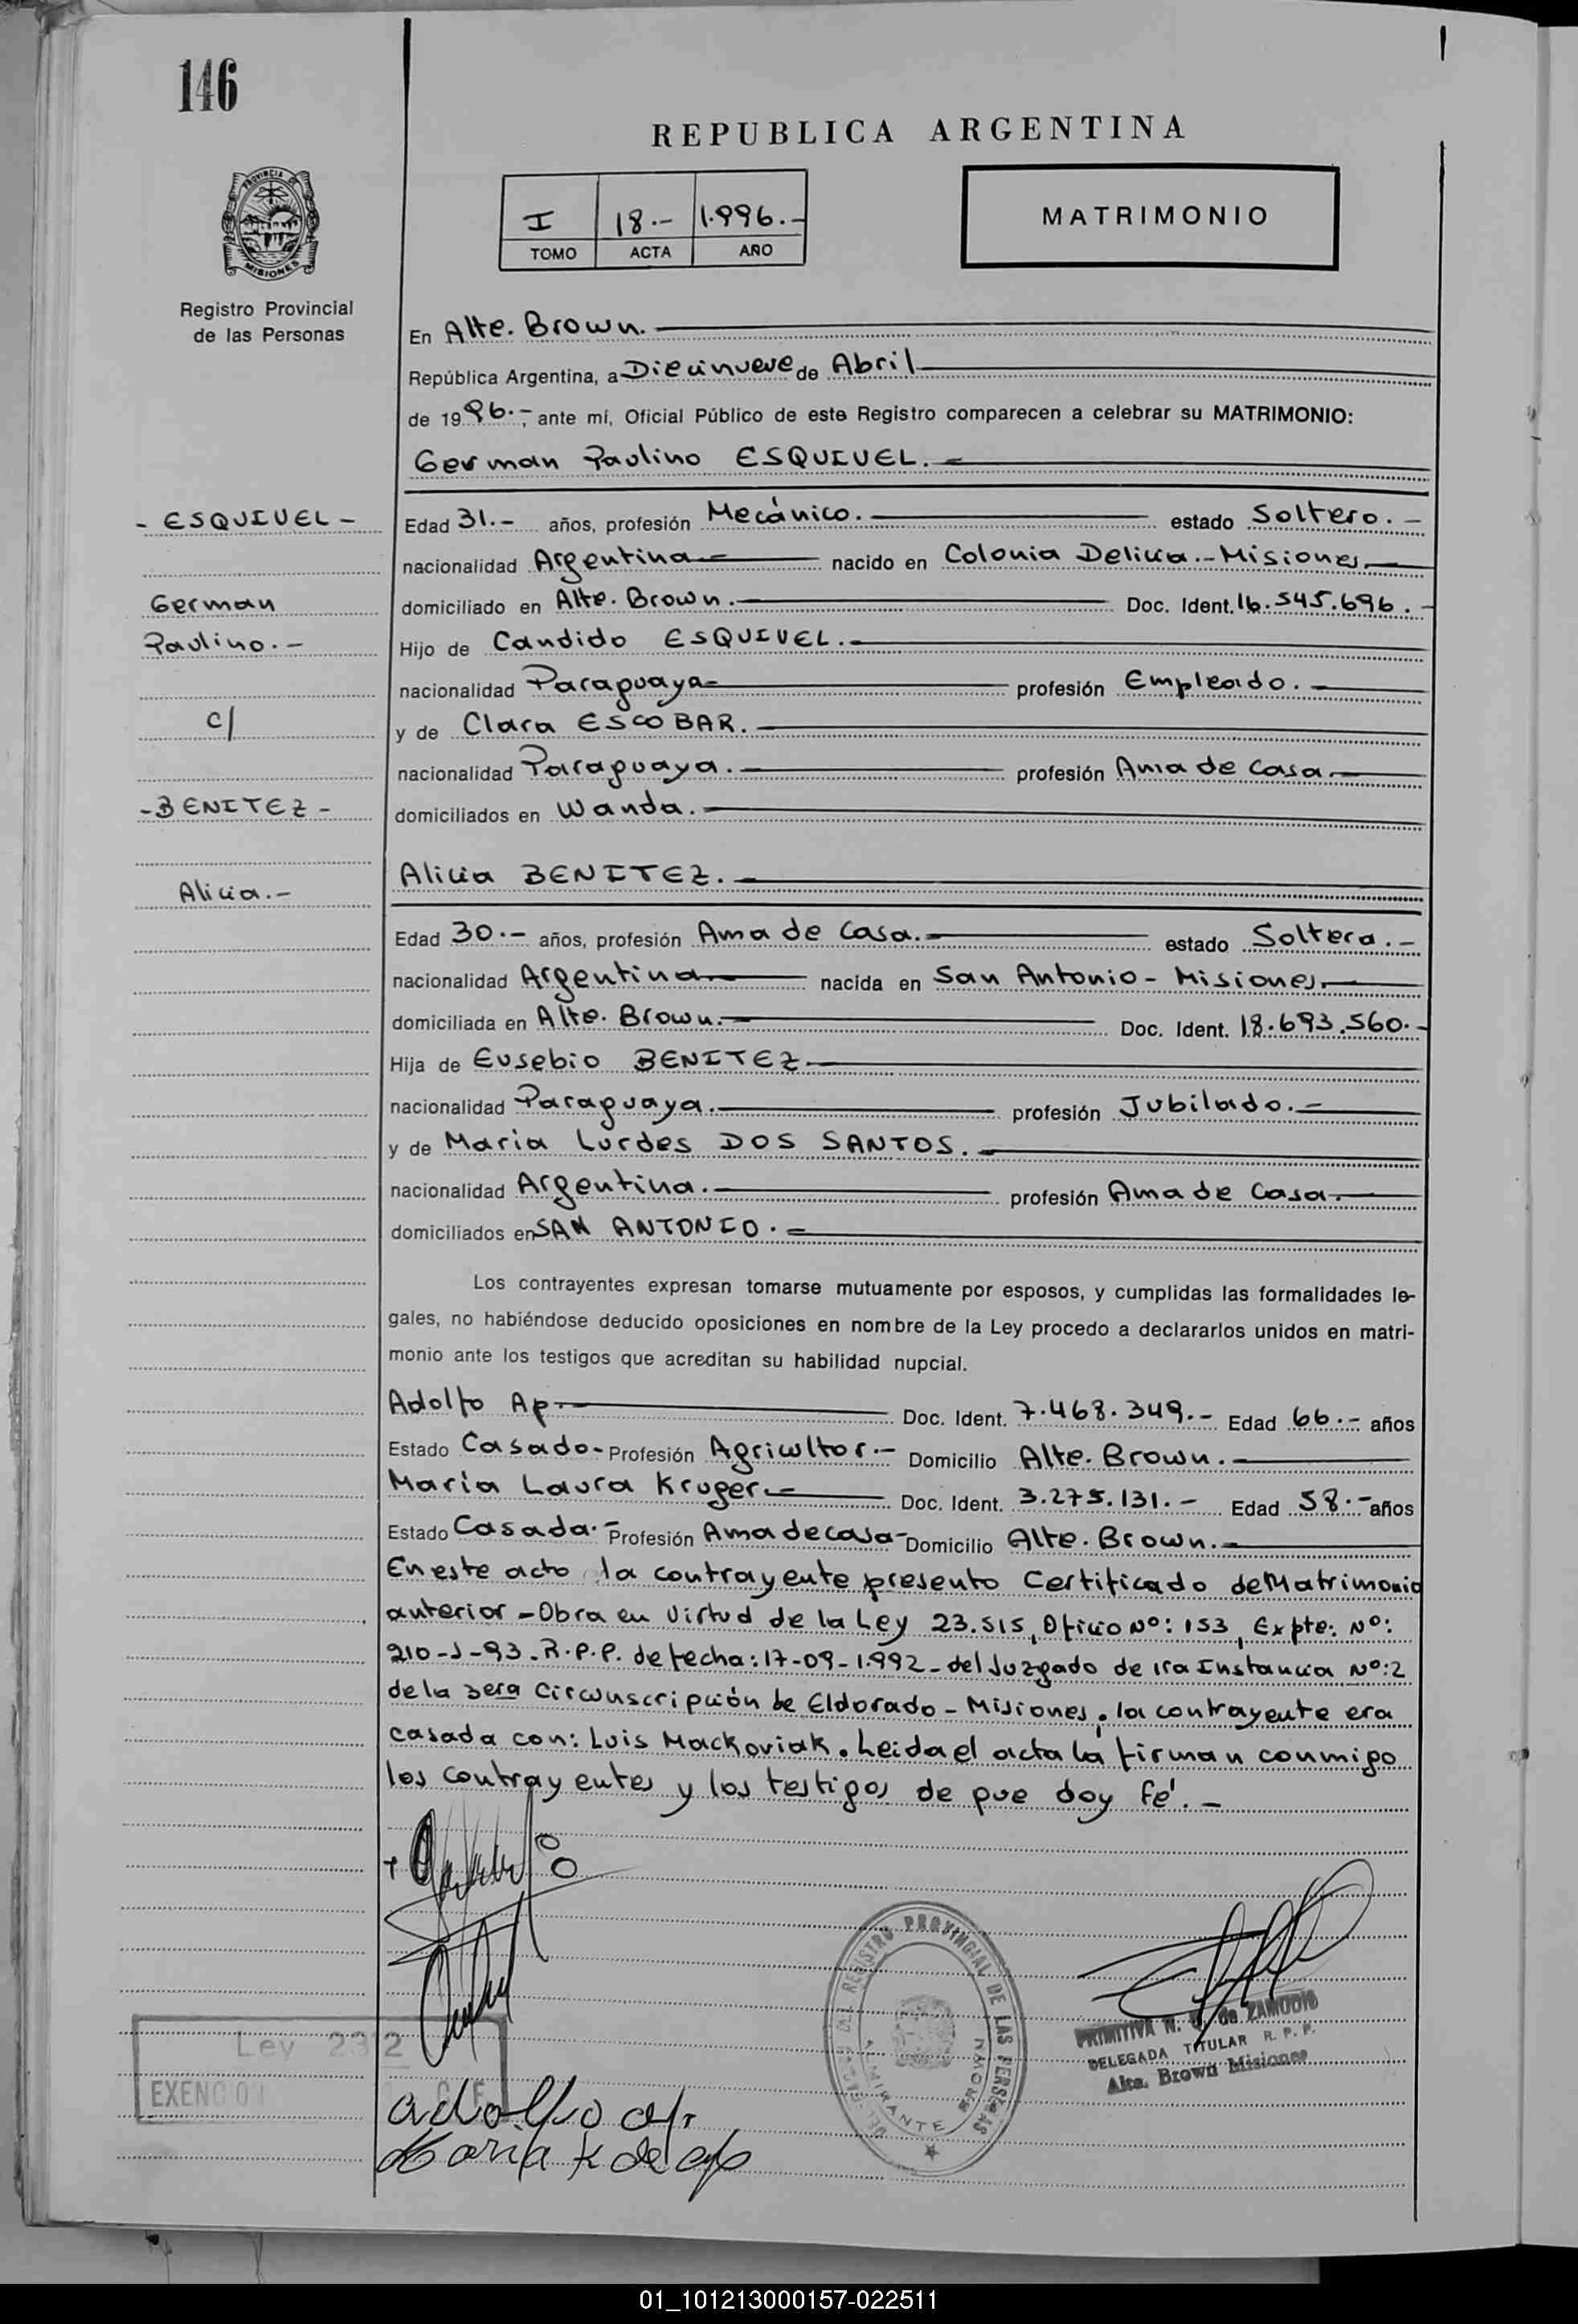 146
REPUBLICA ARGENTINA
PROVINCIA DE
MISIONES
Registro Provincial
de las Personas
I 18.- 1.996.-
TOMO ACTA AÑO
MATRIMONIO
En Alte. Brown.
República Argentina, a Diecinueve de Abril
de 1996.-, ante mí, Oficial Público de este Registro comparecen a celebrar su MATRIMONIO:
German Paulino ESQUIVEL.
- ESQUIVEL -
German
Paulino.-
c/
- BENITEZ -
Alicia.-
Edad 31.- años, profesión Mecánico. estado Soltero.-
nacionalidad Argentina nacido en Colonia Delicia.-Misiones
domiciliado en Alte. Brown. Doc. Ident. 16.545.696.-
Hijo de Candido ESQUIVEL.
nacionalidad Paraguaya profesión Empleado.
y de Clara ESCOBAR.
nacionalidad Paraguaya. profesión Ama de Casa.
domiciliados en Wanda.
Alicia BENITEZ.
Edad 30.- años, profesión Ama de Casa. estado Soltera.-
nacionalidad Argentina nacida en San Antonio - Misiones
domiciliada en Alte. Brown. Doc. Ident. 18.693.560.-
Hija de Eusebio BENITEZ
nacionalidad Paraguaya. profesión Jubilado.-
y de Maria Lurdes DOS SANTOS.
nacionalidad Argentina. profesión Ama de Casa.
domiciliados en SAN ANTONIO.
Los contrayentes expresan tomarse mutuamente por esposos, y cumplidas las formalidades le-
gales, no habiéndose deducido oposiciones en nombre de la Ley procedo a declararlos unidos en matri-
monio ante los testigos que acreditan su habilidad nupcial.
Adolfo Ap. Doc. Ident. 7.468.349.- Edad 66.- años
Estado Casado- Profesión Agricultor.- Domicilio Alte. Brown.
Maria Laura Kruger. Doc. Ident. 3.275.131.- Edad 58.- años
Estado Casada.- Profesión Ama de casa- Domicilio Alte. Brown.
En este acto la contrayente presento Certificado de Matrimonio
anterior - Obra en Virtud de la Ley 23.515, Oficio Nº: 153, Expte. Nº:
210-J-93. R.P.P. de fecha: 17-09-1.992- del Juzgado de 1ra Instancia Nº: 2
de la 3era Circunscripción de Eldorado - Misiones. la contrayente era
casada con: Luis Mackoviak. Leida el acta la firman conmigo
los contrayentes y los testigos de que doy fé.-
Ley 2312
EXENCION
adolfo ap
Maria K de ap
REGISTRO PROVINCIAL DE LAS PERSONAS
ALMIRANTE BROWN
PRIMITIVA N. de ZAMUDIO
DELEGADA TITULAR R. P. P.
Alte. Brown Misiones
01_101213000157-022511